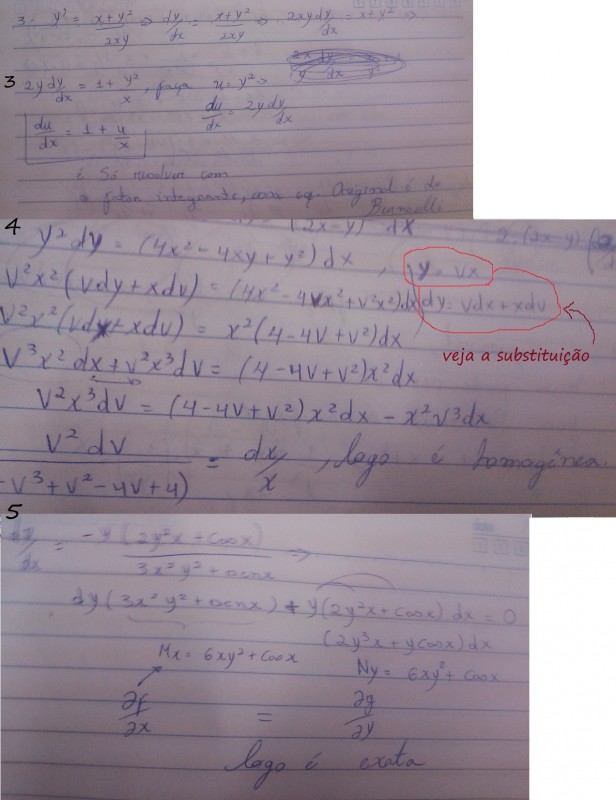 3. y' = x+y²/2xy ⇒ dy/dx = x+y²/2xy ⇒ 2xy dy/dx = x+y² ⇒
3 2y dy/dx = 1 + y²/x, faça u = y² ⇒
du/dx = 2y dy/dx
du/dx = 1 + u/x
é só resolver com
o fator integrante, eq. Original é de
Bernoulli
(2x-y) dx
4 y² dy = (4x² - 4xy + y²) dx, y = vx
v²x² (vdy + xdv) = (4x² - 4vx² + v²x²) dx dy = vdx + xdv
v²x² (vdx + xdv) = x² (4 - 4v + v²) dx
veja a substituição
v³x² dx + v²x³ dv = (4 - 4v + v²) x² dx
v²x³ dv = (4 - 4v + v²) x² dx - x² v³ dx
v² dv/(-v³ + v² - 4v + 4) = dx/x, logo é homogênea
5
dy/dx = -y (2y²x + cos x)/3x²y² + sen x ⇒
dy (3x²y² + sen x) + y (2y²x + cos x) dx = 0
(2y³x + y cos x) dx
Mx = 6xy² + cos x Ny = 6xy² + cos x
∂f/∂x = ∂g/∂y
logo é exata